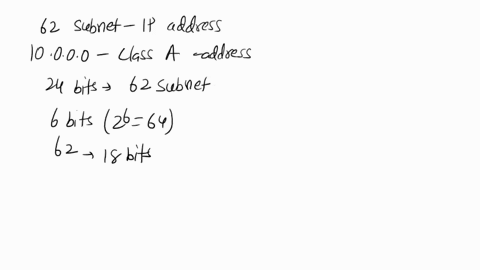 62 subnet - IP address
10.0.0.0 - Class A address
24 bits → 62 subnet
6 bits (2^6=64)
62 → 18 bits